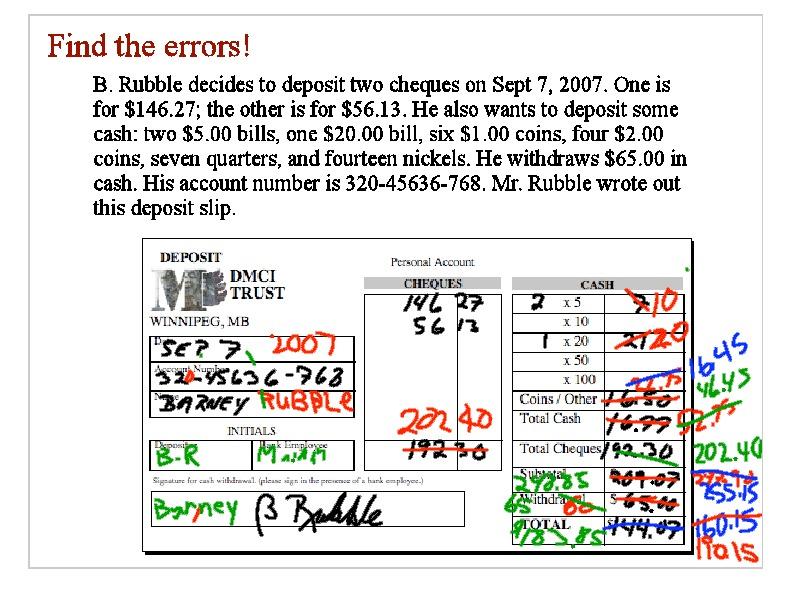 Find the errors!
B. Rubble decides to deposit two cheques on Sept 7, 2007. One is
for $146.27; the other is for $56.13. He also wants to deposit some
cash: two $5.00 bills, one $20.00 bill, six $1.00 coins, four $2.00
coins, seven quarters, and fourteen nickels. He withdraws $65.00 in
cash. His account number is 320-45636-768. Mr. Rubble wrote out
this deposit slip.
DEPOSIT
DMCI
TRUST
WINNIPEG, MB
SEPT 7, 2007
Account Number
320-45636-768
BARNEY RUBBLE
INITIALS
Depositor Bank Employee
B.R
Signature for cash withdrawal. (please sign in the presence of a bank employee.)
Barney B Rubble
Personal Account
CHEQUES
146 27
56 13
202 40
192 30
CASH
2 x 5 10
x 10
1 x 20 20
x 50
x 100
Coins / Other 16.50 16.45
46.45
Total Cash 16.77 52.75
Total Cheques 192.30 202.40
Subtotal
248.85 255.15
Withdrawal $ 65.00
65
160.15
TOTAL $144.07
190.15